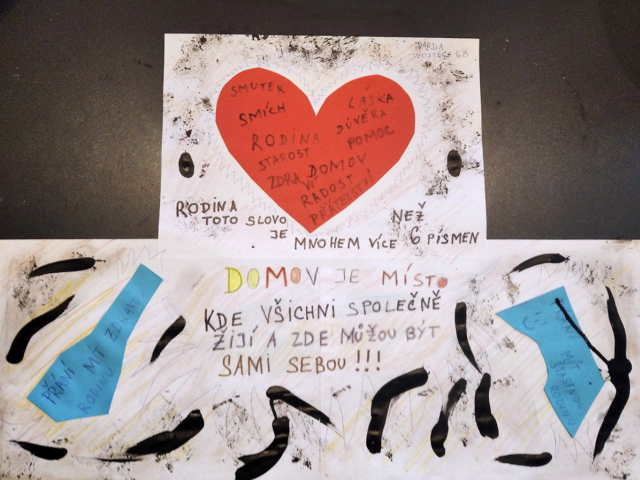 SMUTEK
SMÍCH
LÁSKA
DŮVĚRA
RODINA
POMOC
STAROST
ZDRAVÍ
DOMOV
RADOST
PŘÁTELSTVÍ
RODINA
TOTO SLOVO
JE
MNOHEM VÍCE
NEŽ
6 PÍSMEN
DOMOV JE MÍSTO
KDE VŠICHNI SPOLEČNĚ
ŽIJÍ A ZDE MŮŽOU BÝT
SAMI SEBOU!!!
PŘÁNÍ MÍT ZDRAVÉ
RODINU
MÍT
ŠŤASTNOU
RODINU